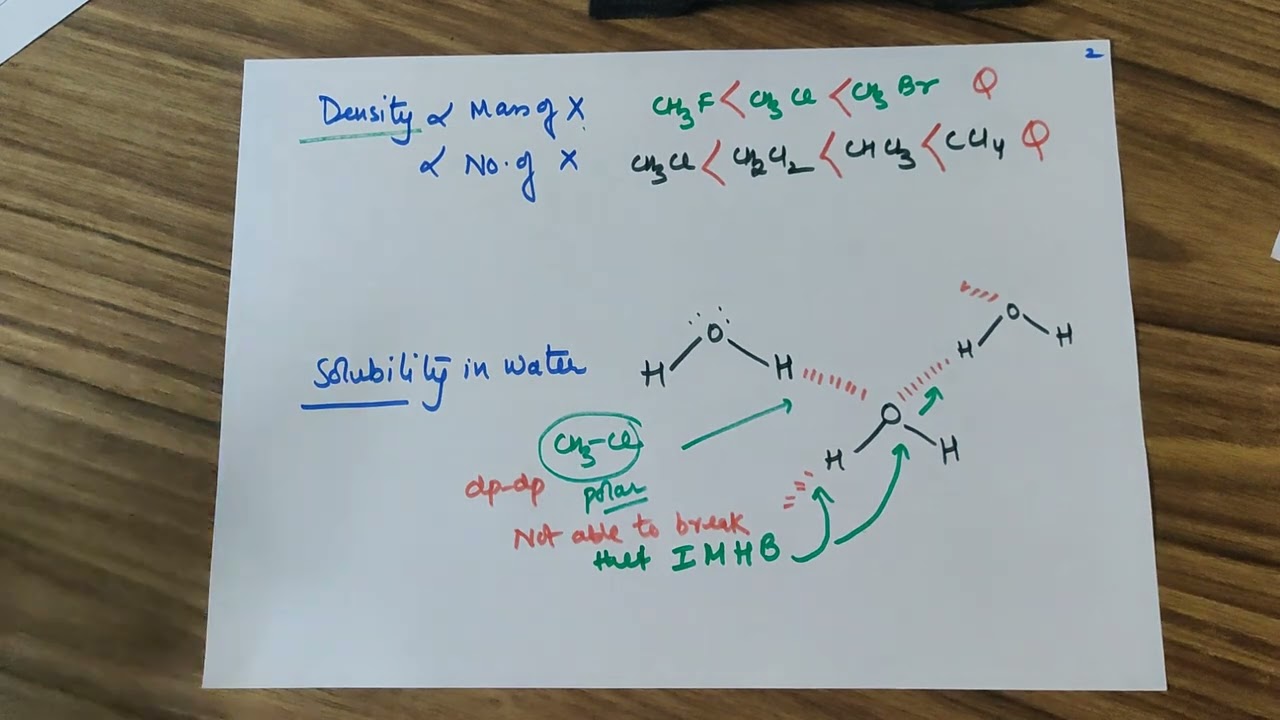 2
Density ∝ Mass of X CH₃F < CH₃Cl < CH₃Br Q
∝ No. of X CH₃Cl < CH₂Cl₂ < CHCl₃ < CCl₄ Q
Solubility in water
H O H
H O H
H O H
CH₃-Cl
dp-dp polar
Not able to break
that IMHB